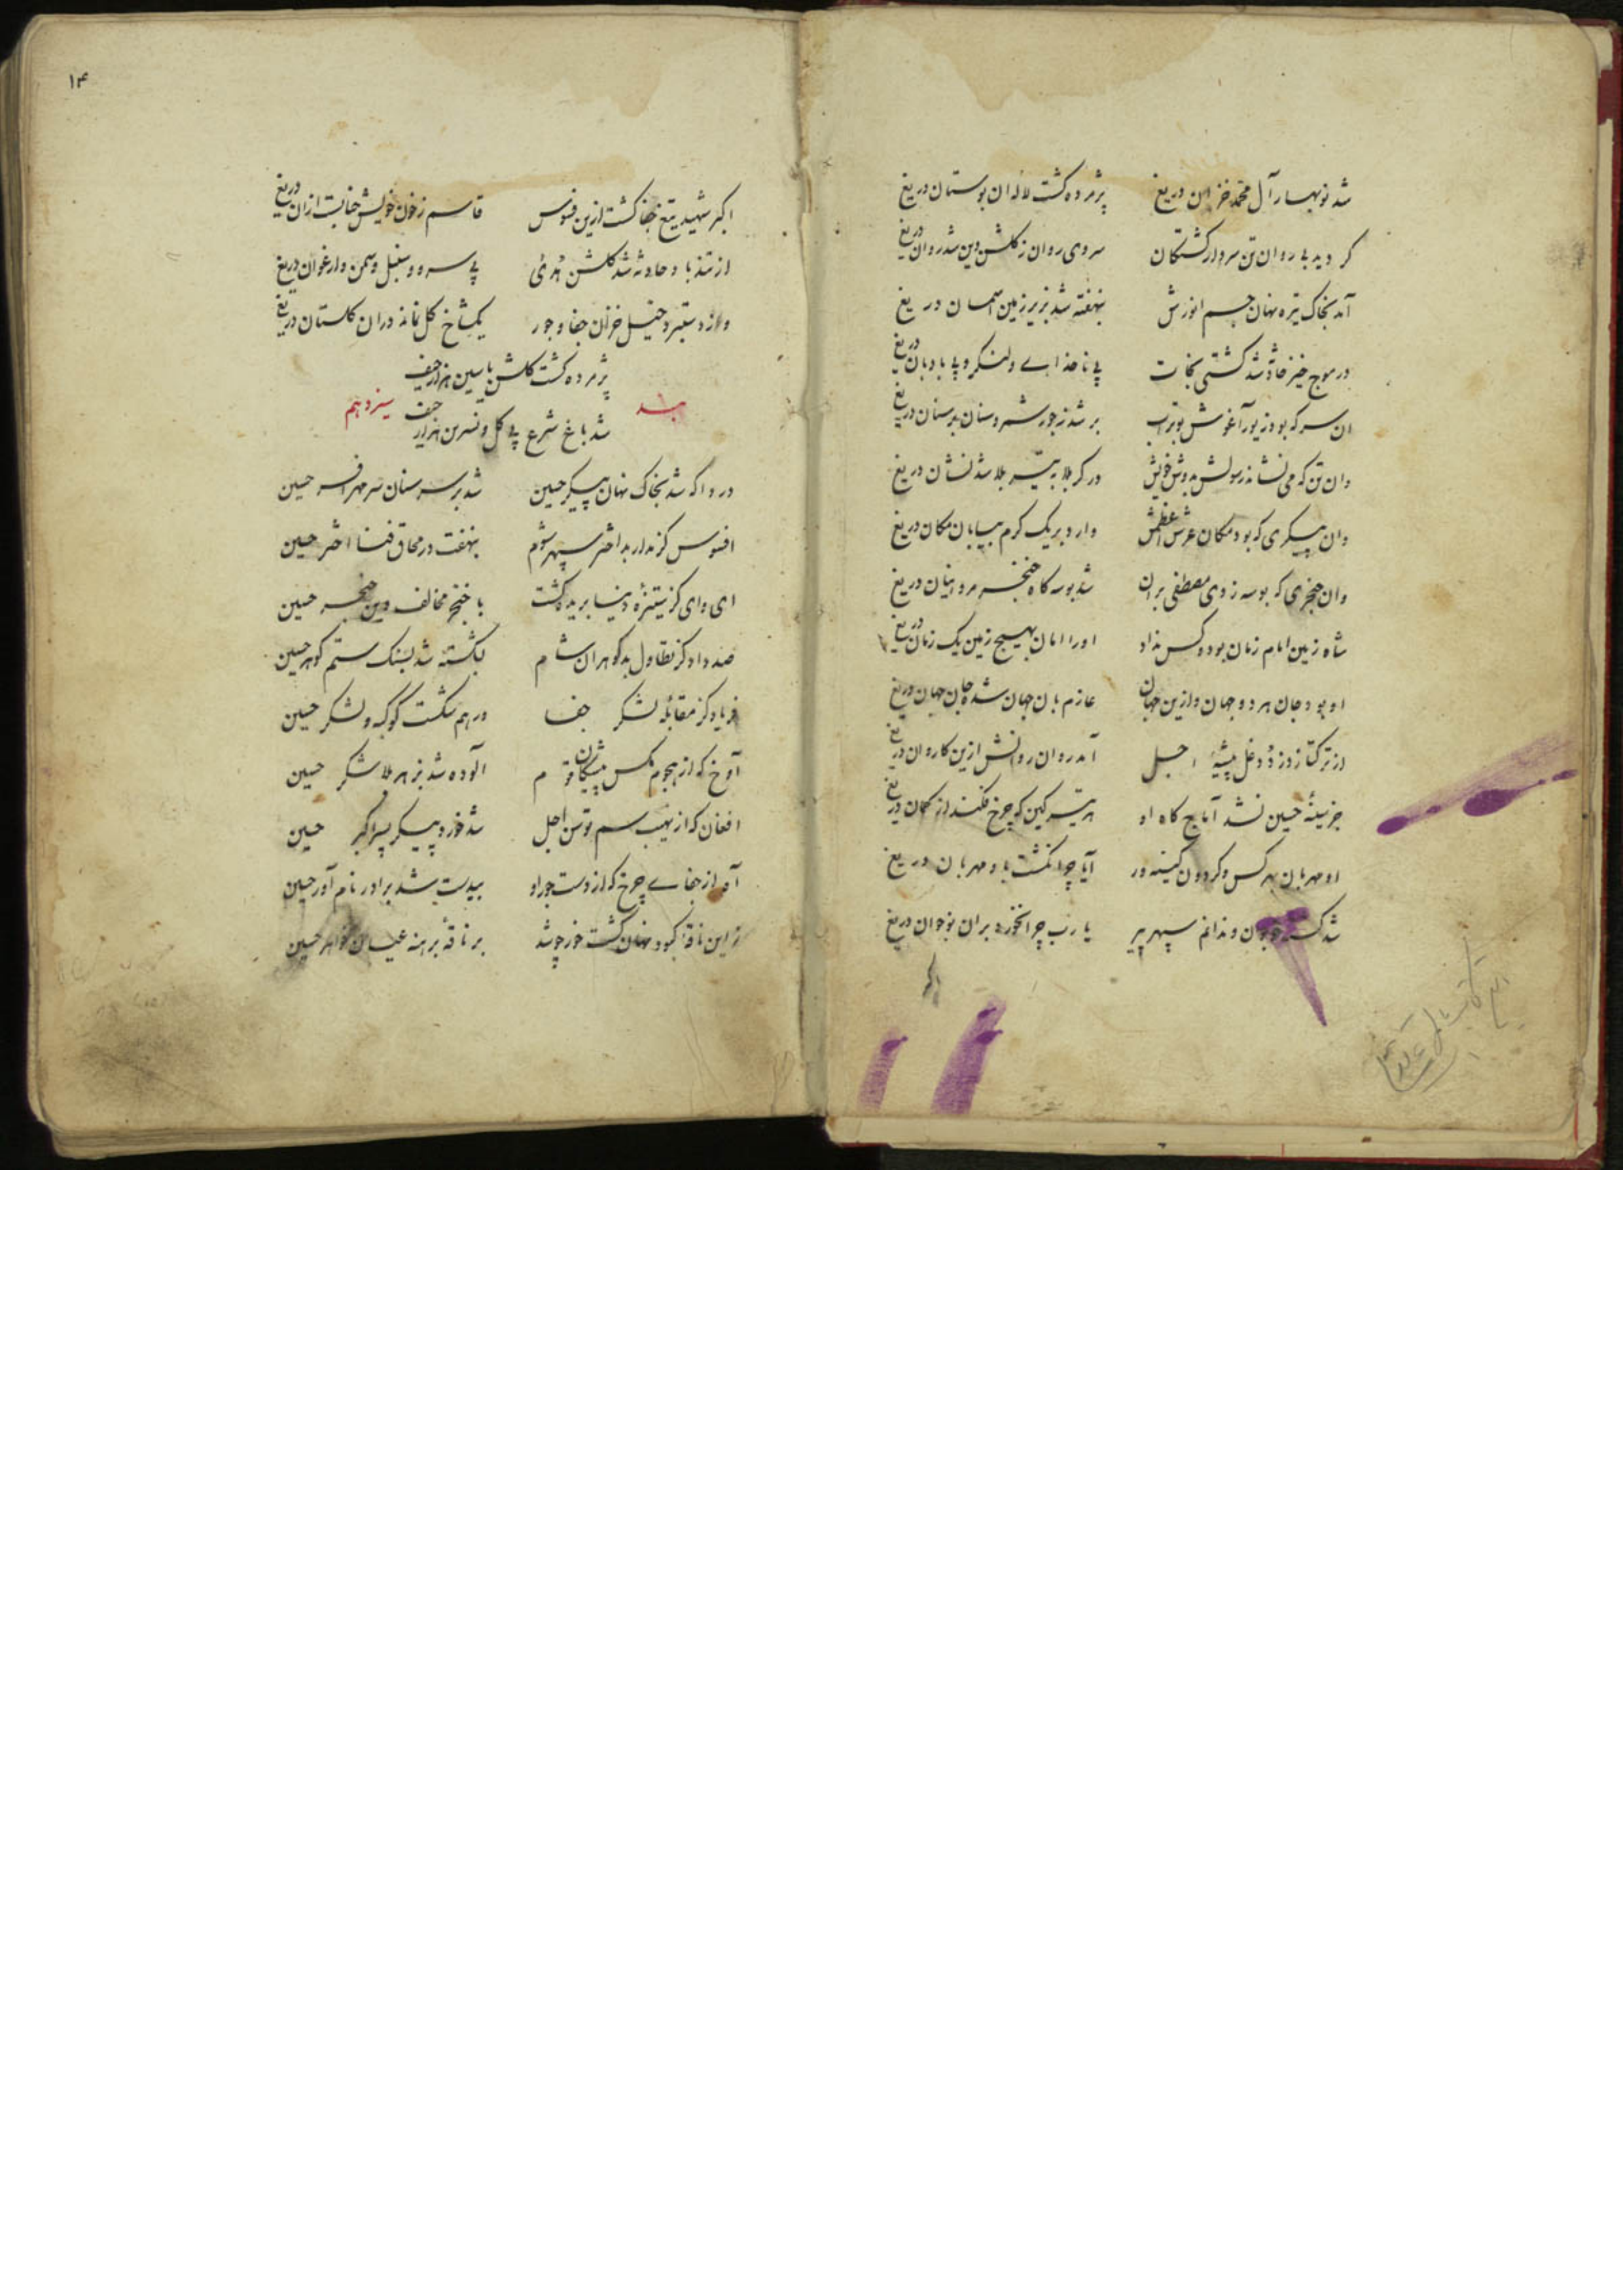 شد نوبهار آل محمد خزان دریغ پژمرده گشت لاله ان بوستان دریغ
کردید بی روان تن سردار کشتکان سروی روان ز کلشن دین شد روان دریغ
آمد بخاک تیره نهان جسم انورش نهفته شد بزیر زمین اسمان دریغ
در موج خیز حادثه شد کشتی نجات بی ناخدای و لنکر و بی بادبان دریغ
ان سر که بود زیور آغوش بوتراب بر شد ز جور شمر و سنان بر سنان دریغ
وان تن که می نشاند رسولش بدوش خویش در کربلا به تیر بلا شد نشان دریغ
وان پیکری که بود مکان عرش اعظمش وارد بریک کرم بیابان مکان دریغ
وان حنجری که بوسه زدی مصطفی بران شد بوسه کاه خنجر مروانیان دریغ
شاه زمین امام زمان بود و کس نداد او را امان بهیچ زمین یک زمان دریغ
او بود جان هر دو جهان و ازین جهان عازم بان جهان شده جان جهان دریغ
از ترکتاز دزد دغل پیشهٔ اجل آمد روان روانش ازین کاروان دریغ
جز سینهٔ حسین نشد آماج کاه او هر تیر کین که چرخ فکند از کمان دریغ
او مهربان بهر کس و کردون کینه ور آیا چرا نکشت باو مهربان دریغ
شد کشته نوجوان و ندانم سپهر پیر یا رب چرا نخورد بران نوجوان دریغ
اکبر
۱۴
اکبر شهید تیغ جفا کشت ازین فسوس قاسم ز خون خویش حنا بست ازان دریغ
از تند باد حادثه شد کلشن هدی بی سرو و سنبل و سمن و ارغوان دریغ
از دستبرد خیل خزان جفا و جور یکشاخ کل نماند دران کلستان دریغ
پژمرده کشت کلشن یاسین هزار حیف
شد باغ شرع بی کل و نسرین هزار حیف
بند سیزدهم
دردا که شد بخاک نهان پیکر حسین شد بر سر سنان سر مهر افسر حسین
افسوس کز مدار بد اختر سپهر شوم نهفت در محاق فنا اختر حسین
ای وای کز ستیزهٔ دنیا بریده کشت با خنجر مخالف دین حنجر حسین
صد داد کز تطاول بدکوهران شام بشکسته شد بسنک ستم کوهر حسین
فریاد کز مقابلهٔ لشکر جفا در هم شکست کوکبه و لشکر حسین
آوخ که از هجوم مکس آلوده شد بزهر بلا شکر حسین
افغان که از نهیب سم توسن اجل شد خورد پیکر پسر اکبر حسین
آه از جفای چرخ که از دست جور او بیدست شد برادر نام آور حسین
زین ناقهٔ کبود نهان کشت خور چو شد بر ناقهٔ برهنه عیان خواهر حسین